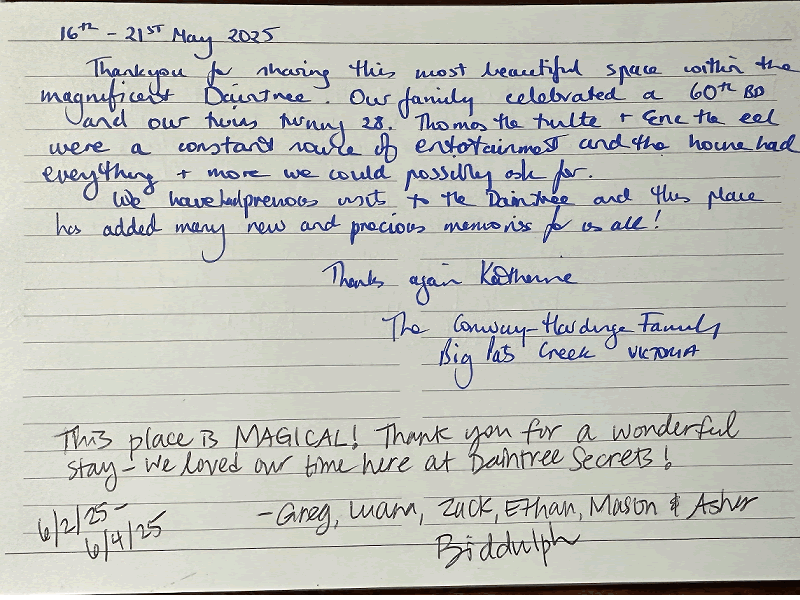 16th - 21ST May 2025
Thankyou for sharing this most beautiful space within the
magnificent Daintree. Our family celebrated a 60th BD
and our twins turning 28. Thomas the turtle + Eric the eel
were a constant source of entertainment and the house had
everything + more we could possibly ask for.
We have had previous visits to the Daintree and this place
has added many new and precious memories for us all!
Thanks again Katherine
The Conway-Hardinge Family
Big Pats Creek VICTORIA
This place is MAGICAL! Thank you for a wonderful
stay - we loved our time here at Daintree Secrets!
6/2/25 -
6/4/25
- Greg, Luann, Zack, Ethan, Mason & Asher
Biddulph